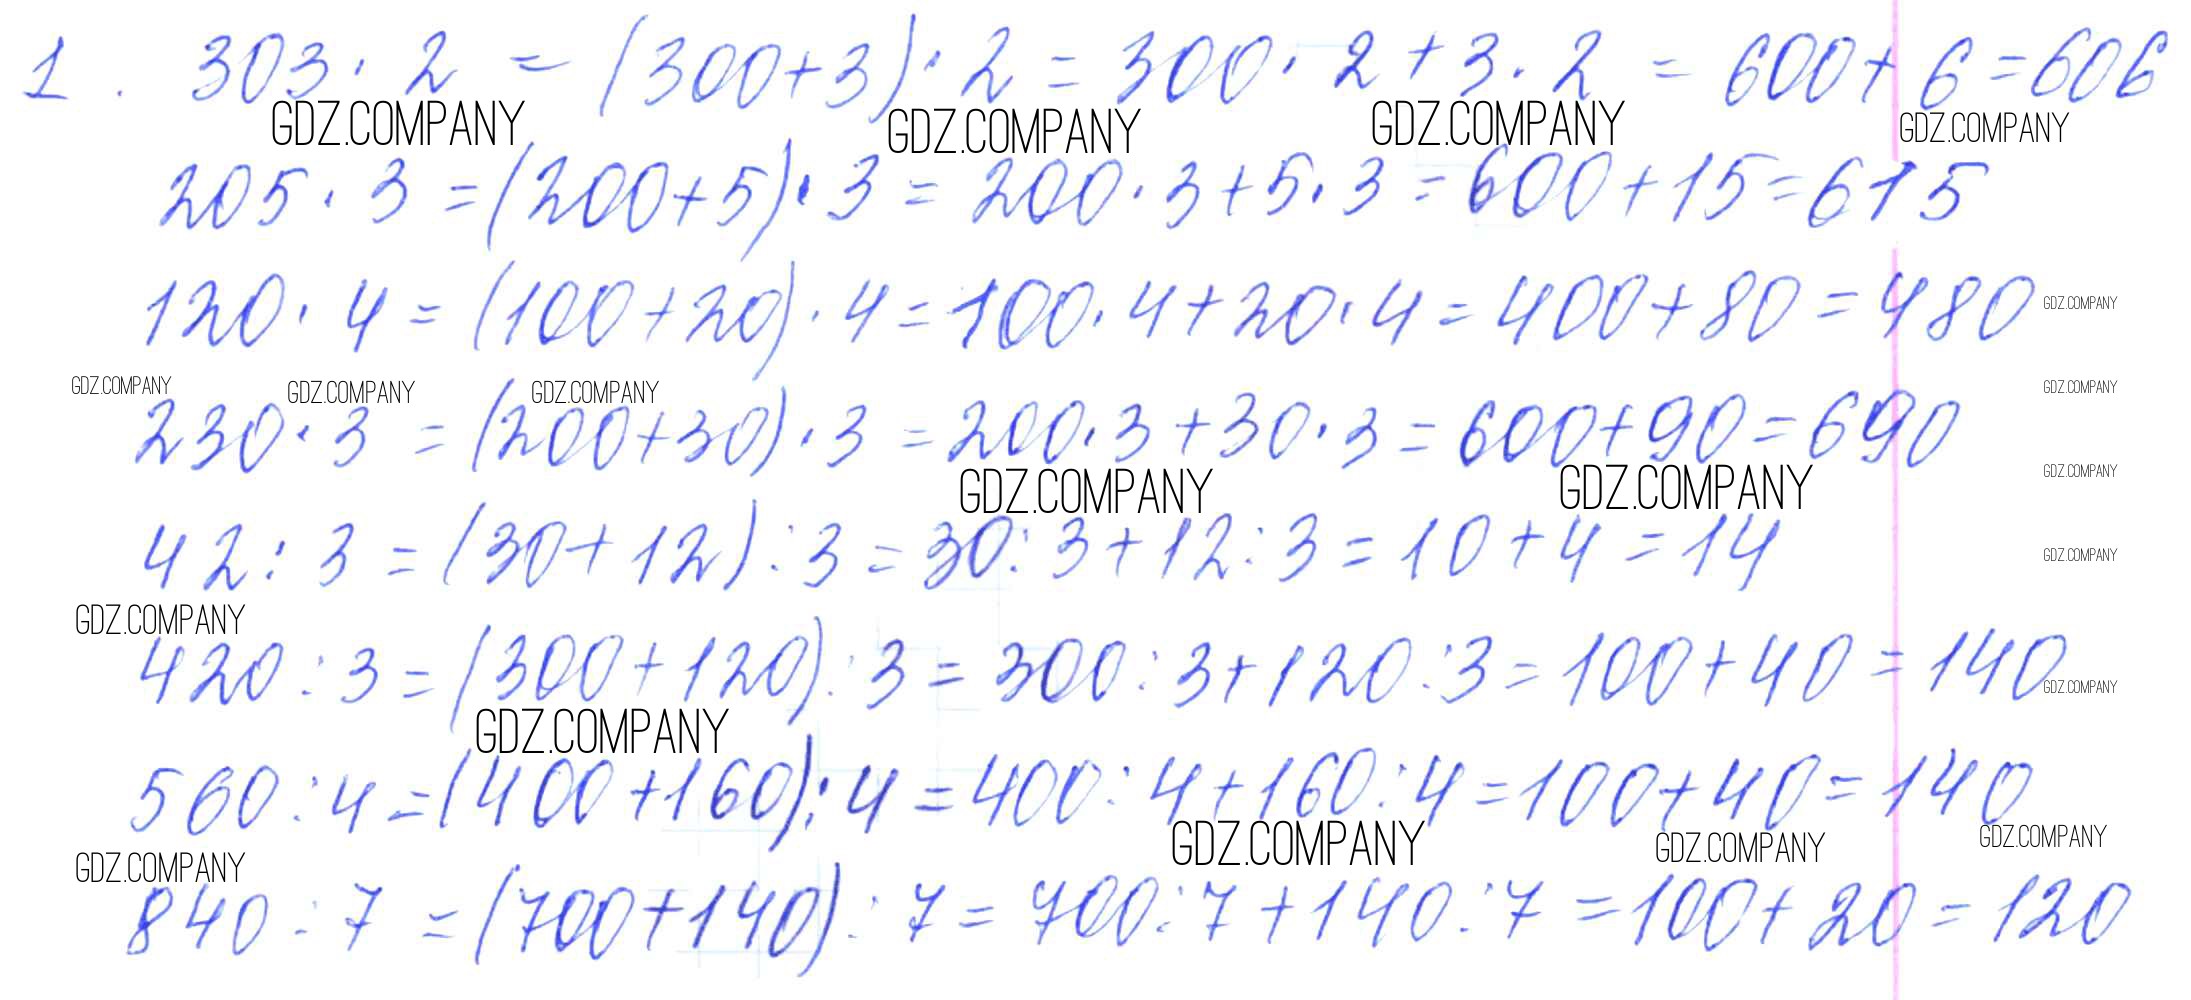 1. 303 · 2 = (300+3) · 2 = 300 · 2 + 3 · 2 = 600 + 6 = 606
GDZ.COMPANY GDZ.COMPANY GDZ.COMPANY GDZ.COMPANY
205 · 3 = (200+5) · 3 = 200 · 3 + 5 · 3 = 600 + 15 = 615
120 · 4 = (100+20) · 4 = 100 · 4 + 20 · 4 = 400 + 80 = 480 GDZ.COMPANY
GDZ.COMPANY GDZ.COMPANY GDZ.COMPANY GDZ.COMPANY
230 · 3 = (200+30) · 3 = 200 · 3 + 30 · 3 = 600 + 90 = 690
GDZ.COMPANY GDZ.COMPANY GDZ.COMPANY
42 : 3 = (30 + 12) : 3 = 30 : 3 + 12 : 3 = 10 + 4 = 14 GDZ.COMPANY
GDZ.COMPANY
420 : 3 = (300 + 120) : 3 = 300 : 3 + 120 : 3 = 100 + 40 = 140 GDZ.COMPANY
GDZ.COMPANY
560 : 4 = (400 + 160) : 4 = 400 : 4 + 160 : 4 = 100 + 40 = 140
GDZ.COMPANY GDZ.COMPANY GDZ.COMPANY GDZ.COMPANY
840 : 7 = (700 + 140) : 7 = 700 : 7 + 140 : 7 = 100 + 20 = 120